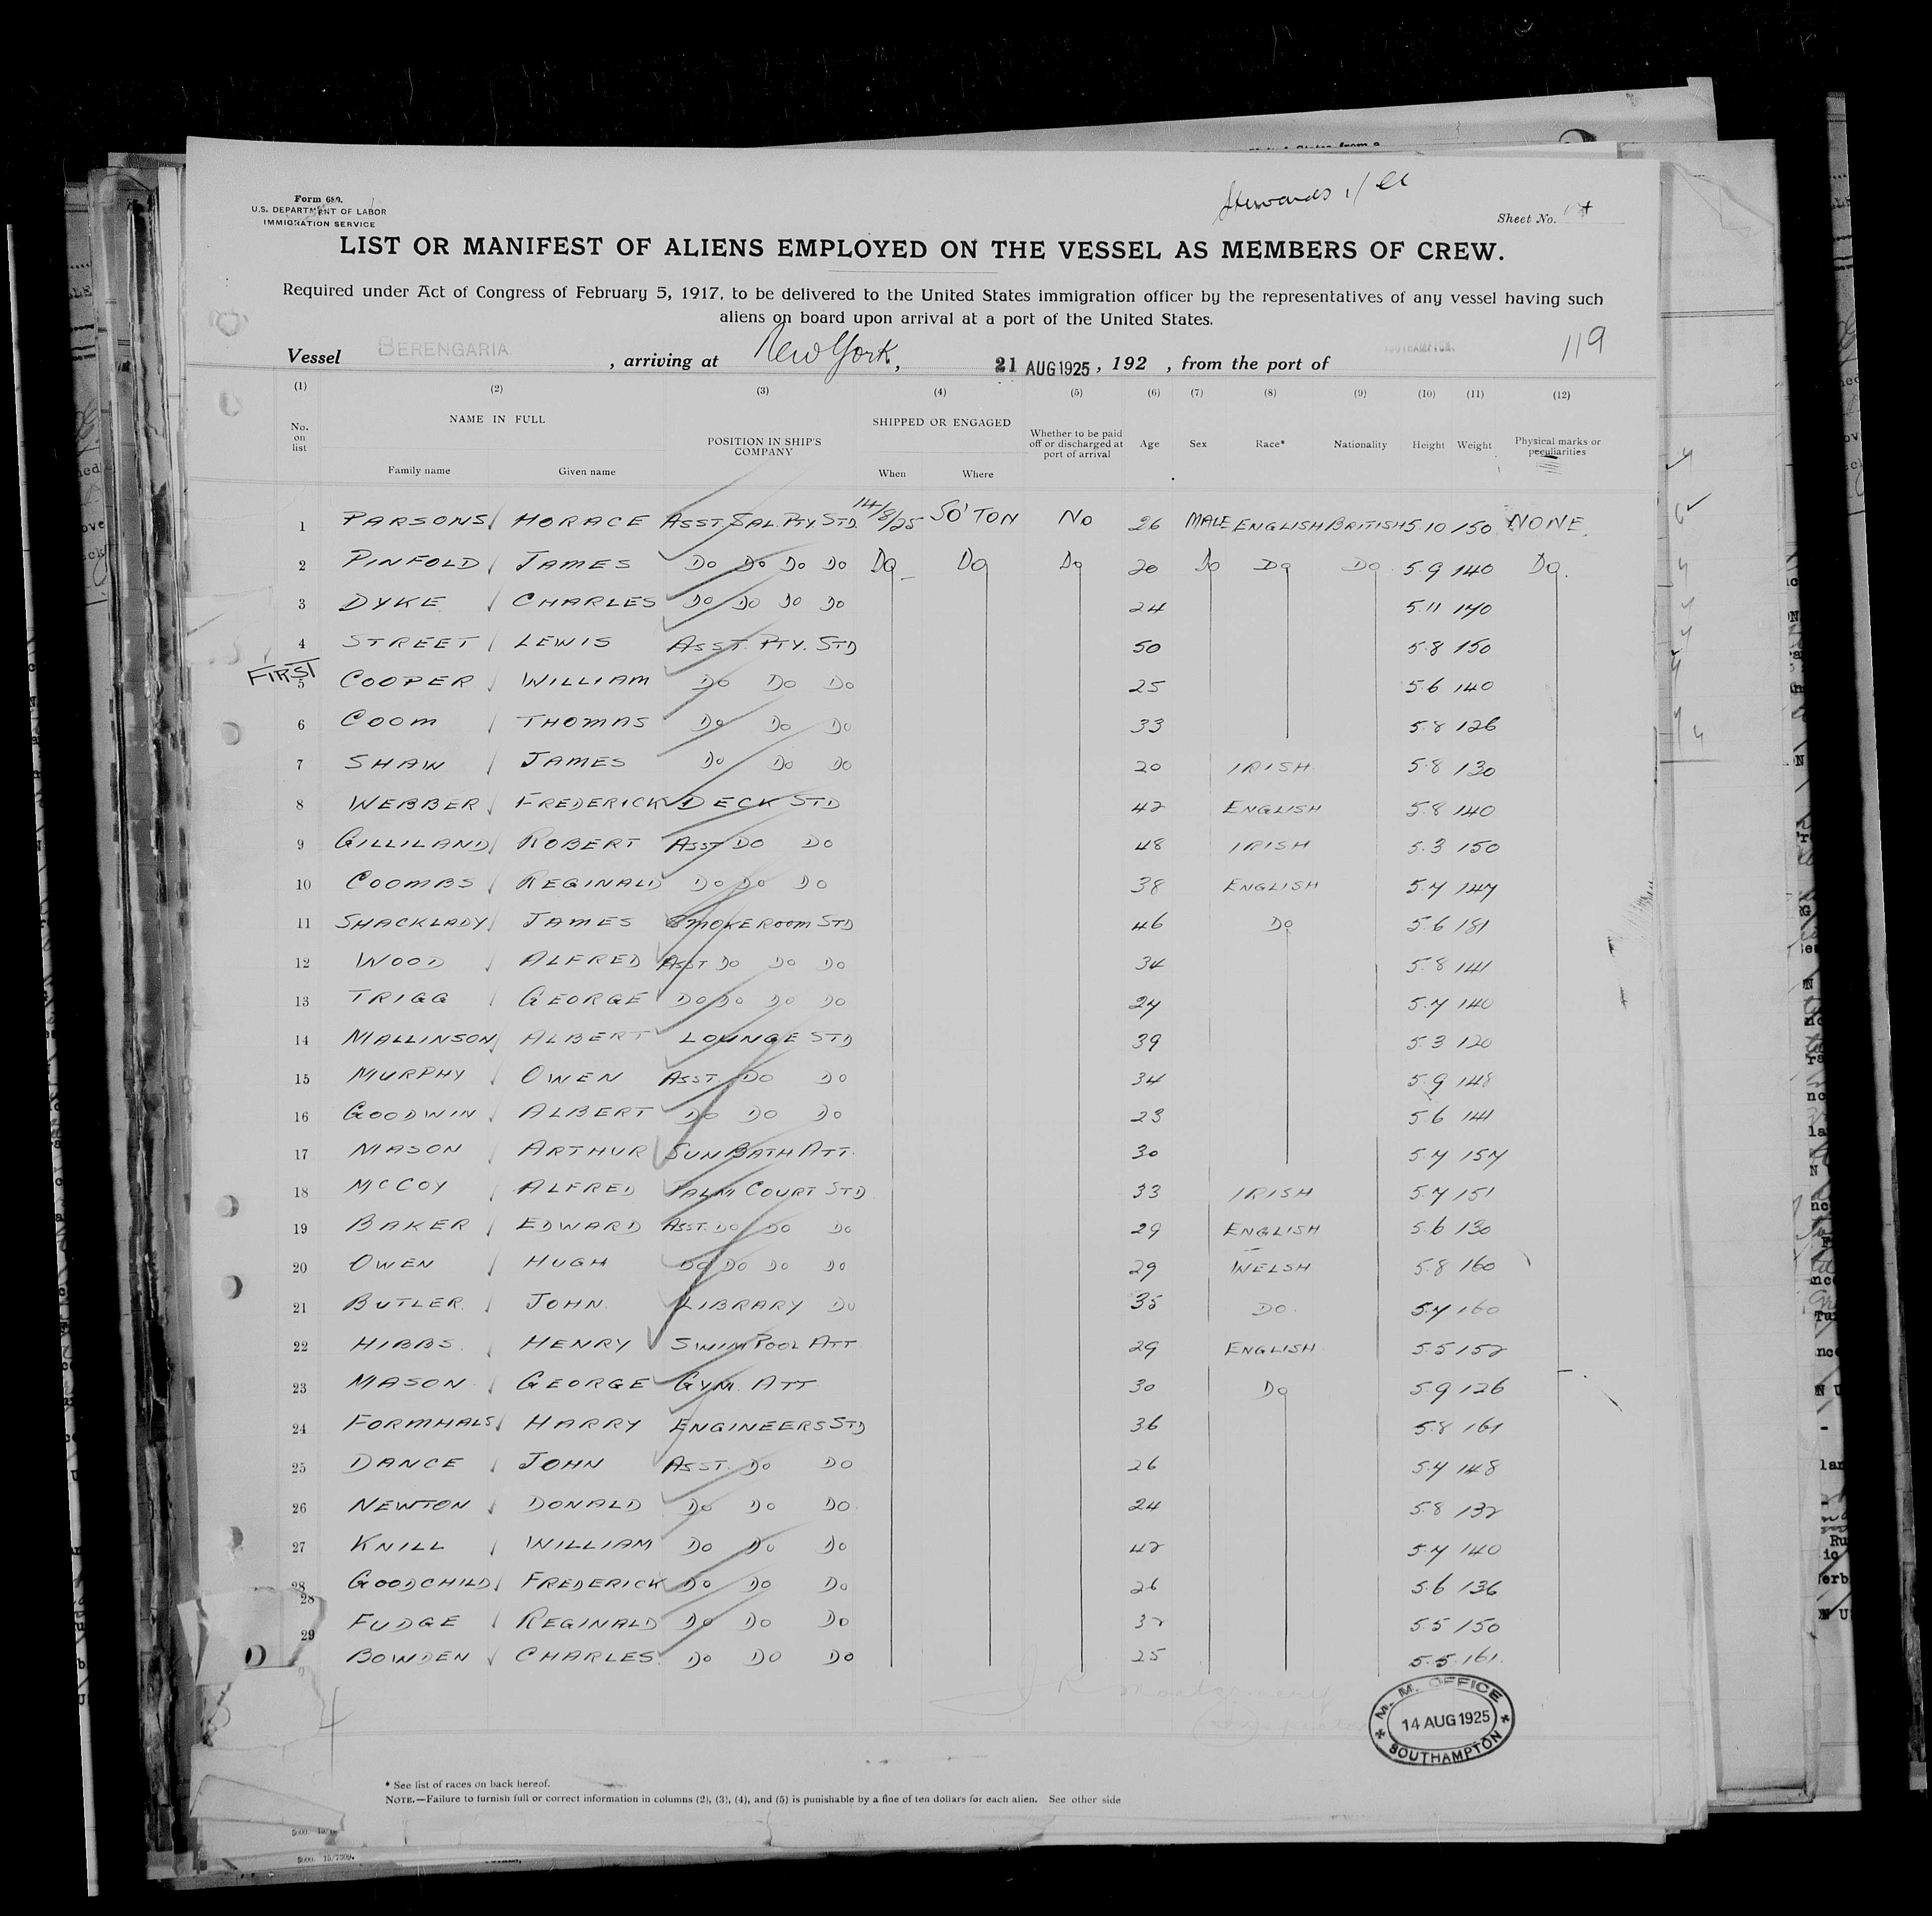 Form 689.
U.S. DEPARTMENT OF LABOR
IMMIGRATION SERVICE
Stewards
Sheet No.
LIST OR MANIFEST OF ALIENS EMPLOYED ON THE VESSEL AS MEMBERS OF CREW.
Required under Act of Congress of February 5, 1917, to be delivered to the United States immigration officer by the representatives of any vessel having such
aliens on board upon arrival at a port of the United States.
119
Vessel BERENGARIA , arriving at New York, 21 AUG 1925 , 192 , from the port of SOUTHAMPTON.
(1) (2) (3) (4) (5) (6) (7) (8) (9) (10) (11) (12)
No. on list NAME IN FULL Family name Given name POSITION IN SHIP'S COMPANY SHIPPED OR ENGAGED When Where Whether to be paid off or discharged at port of arrival Age Sex Race* Nationality Height Weight Physical marks or peculiarities
1 PARSONS HORACE ASST. SAL. PTY STD 14/8/25 SO'TON NO 26 MALE ENGLISH BRITISH 5.10 150 NONE.
2 PINFOLD JAMES DO DO DO DO DO DO DO 20 DO DO DO 5.9 140 DO.
3 DYKE CHARLES DO DO DO DO 24 5.11 170
4 STREET LEWIS ASST. PTY. STD 50 5.8 150
FIRST
5 COOPER WILLIAM DO DO DO 25 5.6 140
6 COOM THOMAS DO DO DO 33 5.8 126
7 SHAW JAMES DO DO DO 20 IRISH 5.8 130
8 WEBBER FREDERICK DECK STD 42 ENGLISH 5.8 140
9 GILLILAND ROBERT ASST DO DO 48 IRISH 5.3 150
10 COOMBS REGINALD DO DO DO 38 ENGLISH 5.7 147
11 SHACKLADY JAMES SMOKEROOM STD 46 DO 5.6 181
12 WOOD ALFRED ASST DO DO DO 34 5.8 141
13 TRIGG GEORGE DO DO DO DO 27 5.7 140
14 MALLINSON ALBERT LOUNGE STD 39 5.3 120
15 MURPHY OWEN ASST DO DO 34 5.9 148
16 GOODWIN ALBERT DO DO DO 23 5.6 141
17 MASON ARTHUR SUN BATH ATT. 30 5.7 157
18 McCOY ALFRED PALM COURT STD 33 IRISH 5.7 151
19 BAKER EDWARD ASST. DO DO DO 29 ENGLISH 5.6 130
20 OWEN HUGH DO DO DO DO 29 WELSH 5.8 160
21 BUTLER JOHN LIBRARY DO 35 DO. 5.7 160
22 HIBBS HENRY SWIM POOL ATT 29 ENGLISH 5.5 152
23 MASON GEORGE GYM. ATT 30 DO 5.9 126
24 FORMHALS HARRY ENGINEERS STD 36 5.8 161
25 DANCE JOHN ASST. DO DO 26 5.7 148
26 NEWTON DONALD DO DO DO 24 5.8 132
27 KNILL WILLIAM DO DO DO 42 5.7 140
28 GOODCHILD FREDERICK DO DO DO 26 5.6 136
28 FUDGE REGINALD DO DO DO 32 5.5 150
29 BOWDEN CHARLES DO DO DO 25 5.5 161
M. M. OFFICE
14 AUG 1925
SOUTHAMPTON
* See list of races on back hereof.
NOTE.—Failure to furnish full or correct information in columns (2), (3), (4), and (5) is punishable by a fine of ten dollars for each alien. See other side